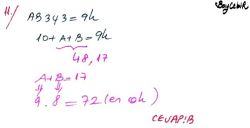 11./ AB343 = 9k
10+A+B = 9k
48,17
A+B=17
9.8 = 72 (en çok)
CEVAP:B